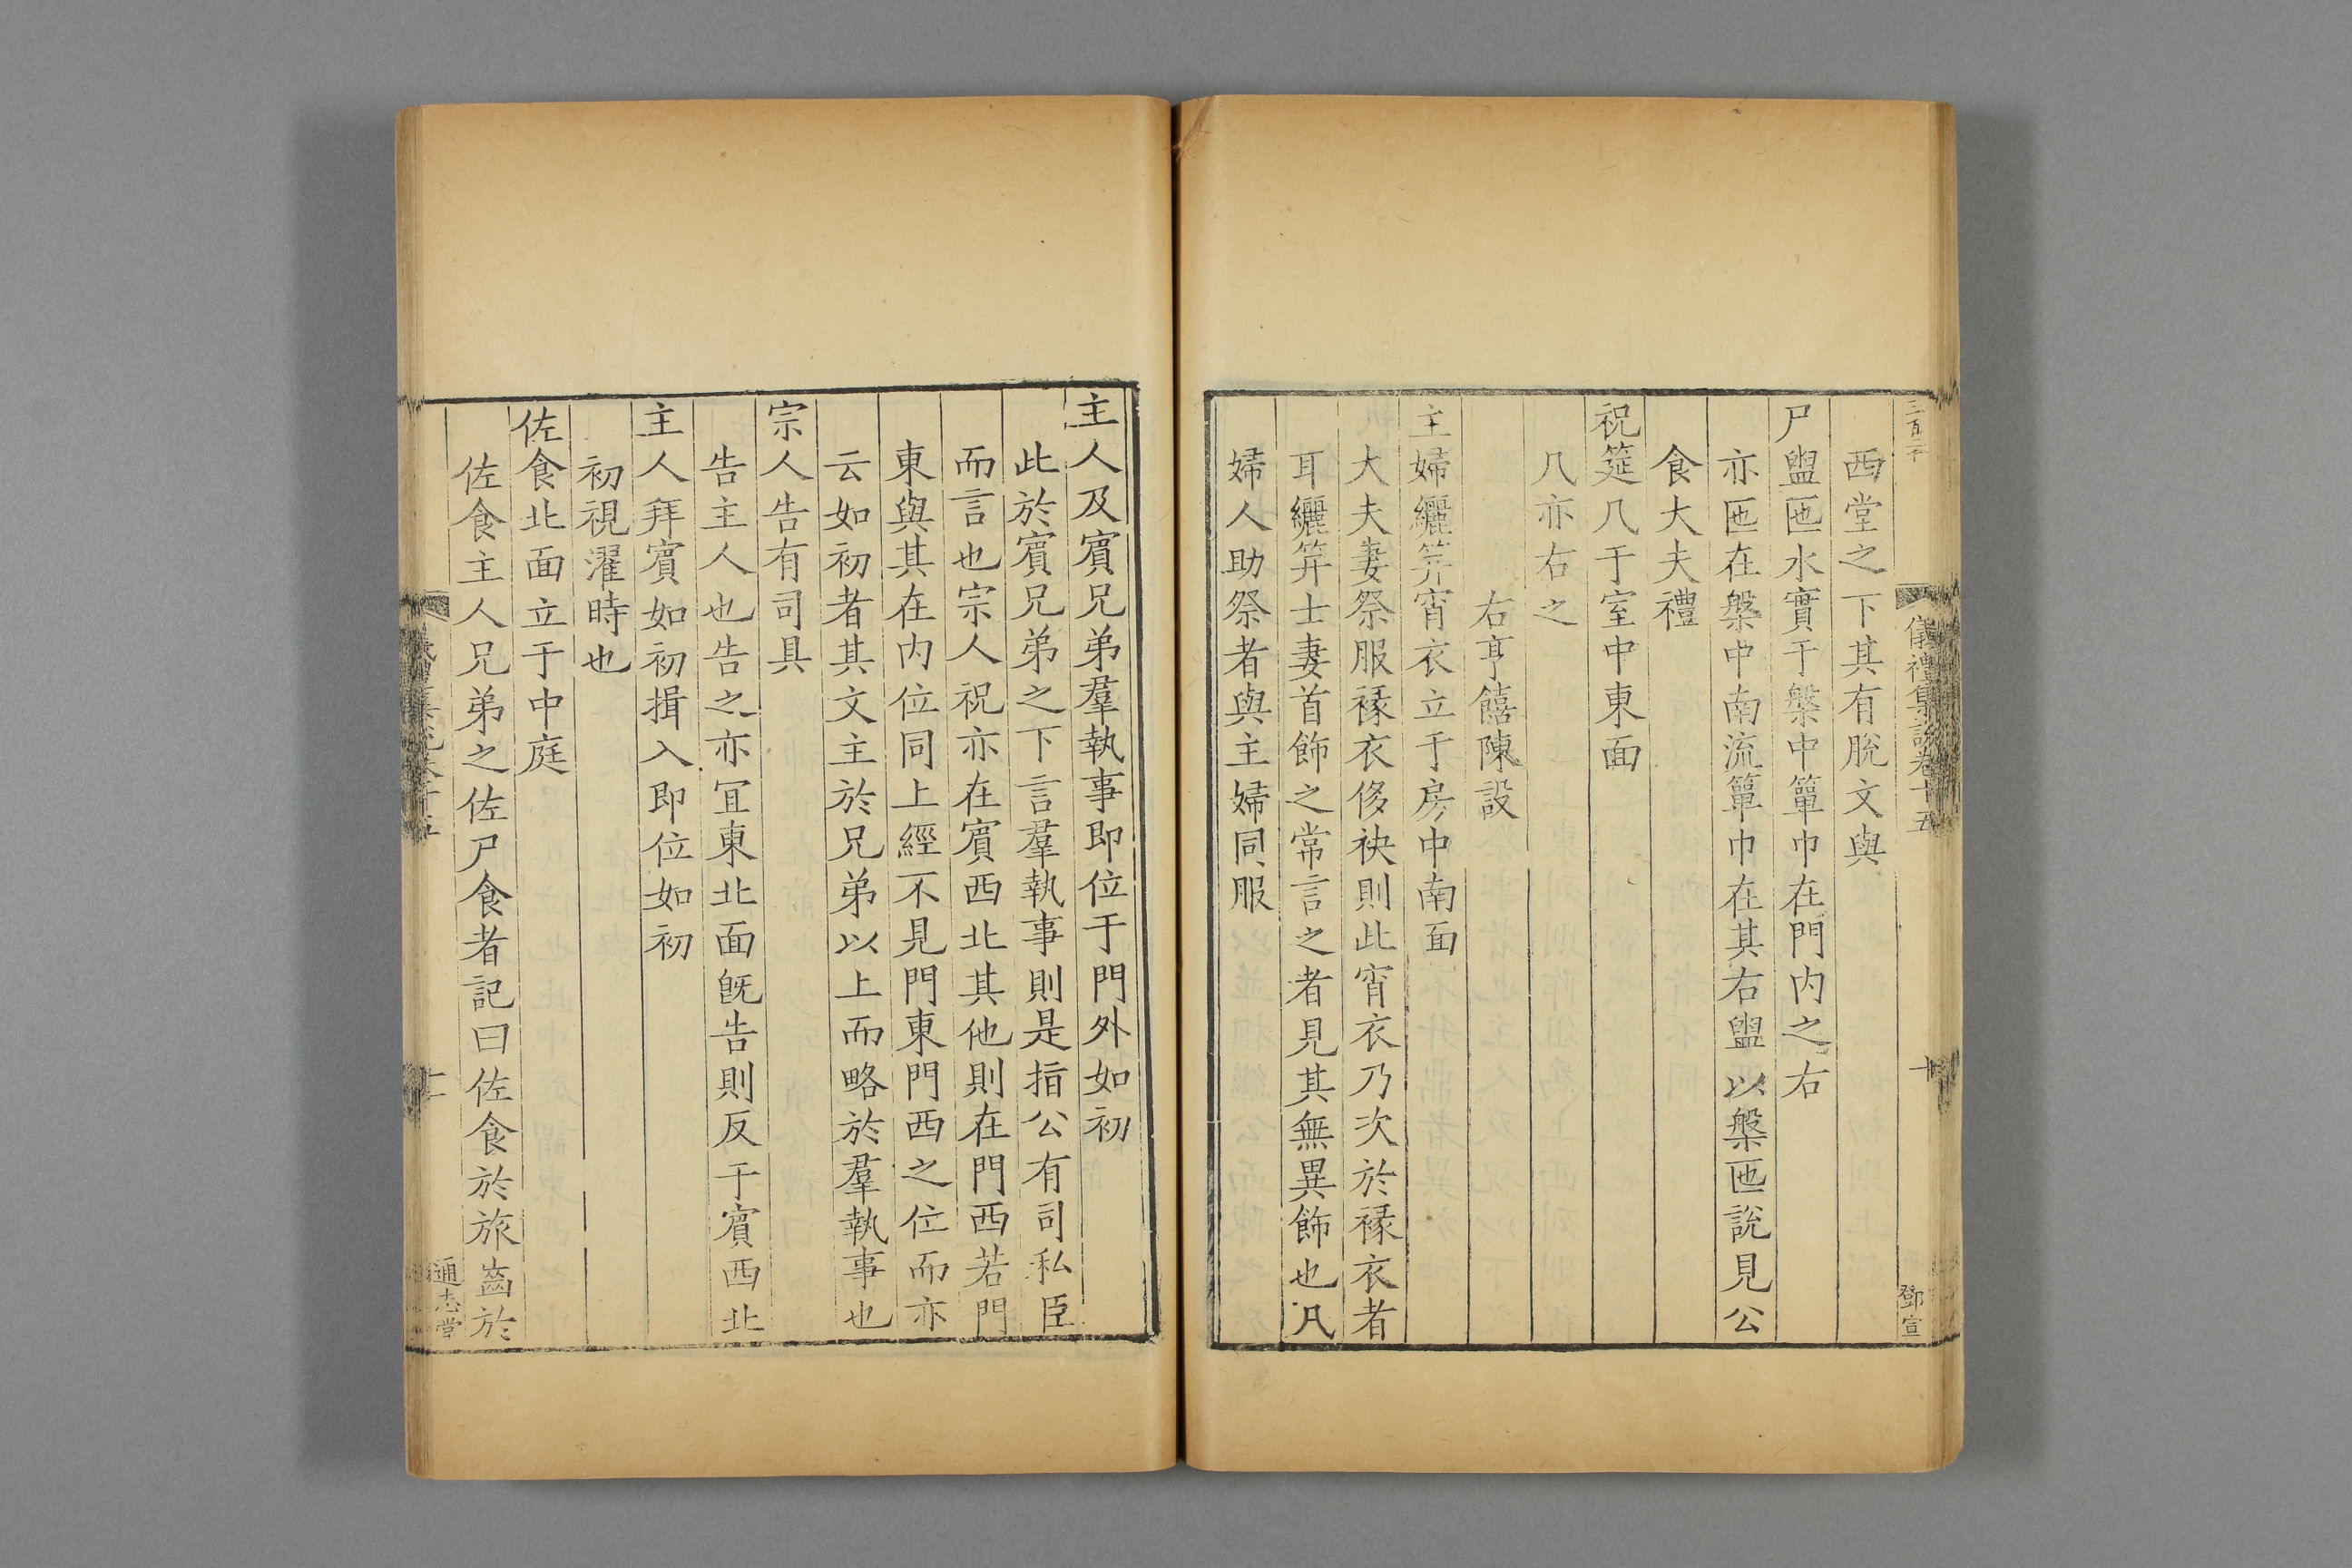 儀禮集說卷十五
十
鄧宣
西堂之下其有脫文與
尸盥匜水實于槃中簞巾在門内之右
亦匜在槃中南流簞巾在其右盥以槃匜說見公
食大夫禮
祝筵几于室中東面
几亦右之
右亨饎陳設
主婦纚笄宵衣立于房中南面
大夫妻祭服褖衣侈袂則此宵衣乃次於褖衣者
耳纚笄士妻首飾之常言之者見其無異飾也凡
婦人助祭者與主婦同服
主人及賓兄弟羣執事即位于門外如初
此於賓兄弟之下言羣執事則是指公有司私臣
而言也宗人祝亦在賓西北其他則在門西若門
東與其在内位同上經不見門東門西之位而亦
云如初者其文主於兄弟以上而略於羣執事也
宗人告有司具
告主人也告之亦冝東北面旣告則反于賓西北
主人拜賓如初揖入即位如初
初視濯時也
佐食北面立于中庭
佐食主人兄弟之佐尸食者記曰佐食於旅齒於
通志堂